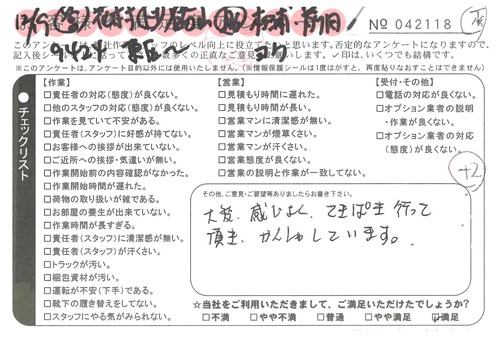 No 042118
このアンケートは
のレベル向上に役立て
と思います。否定的なアンケートになりますので、
数多くの正直なご意見をお願いします。✓印は、いくつでも結構です。
※このアンケートは、アンケート目的以外には使用いたしません。(※情報保護シールは1度はがすと、再度貼りなおすことはできません)
チェックリスト
【作業】
□責任者の対応(態度)が良くない。
□他のスタッフの対応(態度)が良くない。
□作業を見ていて不安がある。
□責任者(スタッフ)に好感が持てない。
□お客様への挨拶が出来ていない。
□ご近所への挨拶・気遣いが無い。
□作業開始前の内容確認がなかった。
□作業開始時間が遅れた。
□荷物の取り扱いが雑である。
□お部屋の養生が出来ていない。
□作業時間が長すぎる。
□責任者(スタッフ)に清潔感が無い。
□責任者(スタッフ)が汗くさい。
□トラックが汚い。
□梱包資材が汚い。
□運転が不安(下手)である。
□靴下の履き替えをしてない。
□スタッフにやる気がみられない。
【営業】
□見積もり時間に遅れた。
□見積もり時間が長い。
□営業マンに清潔感が無い。
□営業マンが煙草くさい。
□営業マンが汗くさい。
□営業態度が良くない。
□営業の説明と作業が一致してない。
【受付・その他】
□電話の対応が良くない。
□オプション業者の説明
・作業が良くない。
□オプション業者の対応
(態度)が良くない。
+2
その他、ご意見・ご要望等ありましたらお書き下さい。
大変、感じよく、てきぱき行って
頂き、かんしゃしています。
☆当社をご利用いただきまして、ご満足いただけたでしょうか?
□不満 □やや不満 □普通 □やや満足 ☑満足